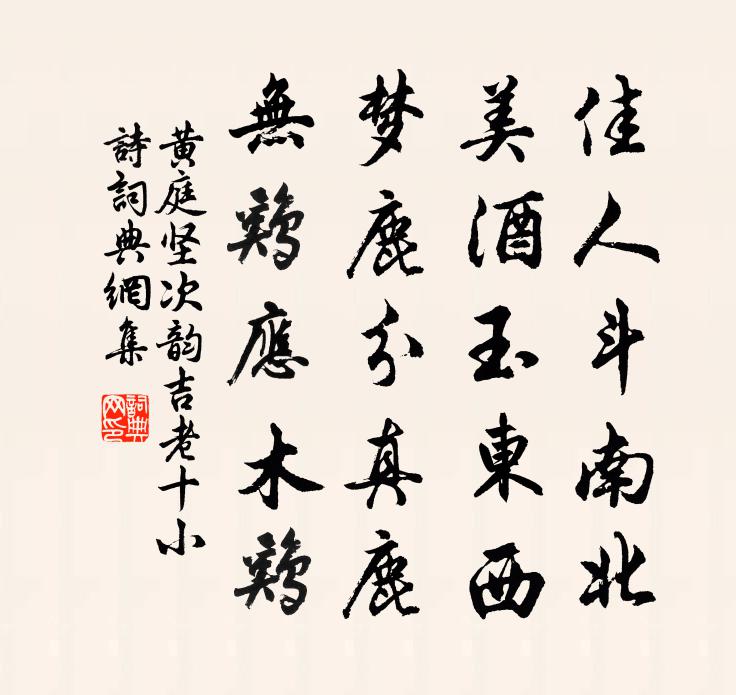 佳人斗南北
美酒玉東西
梦鹿分真鹿
無鷄應木鷄
黄庭坚次韵吉老十小
詩詞典網集
詞典網印